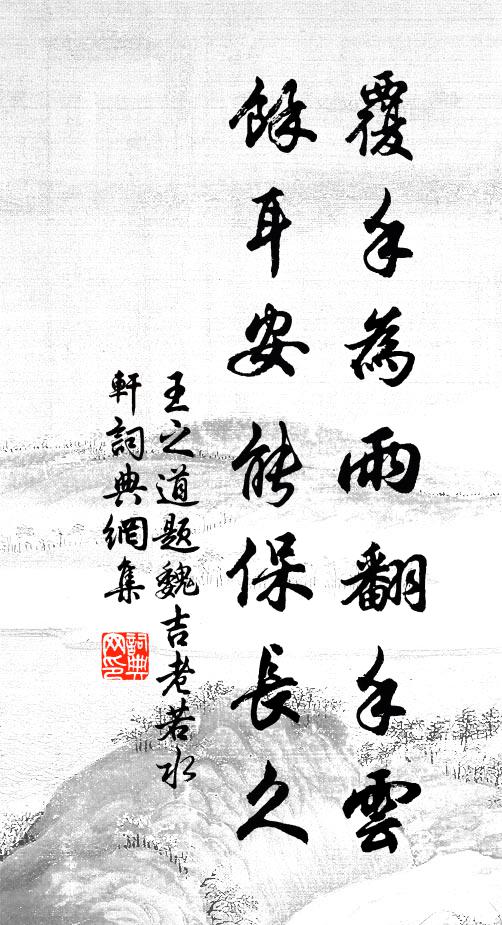 覆手為雨翻手雲
餘耳安能保長久
王之道題魏吉老若水
軒詞典網集
詞典网印